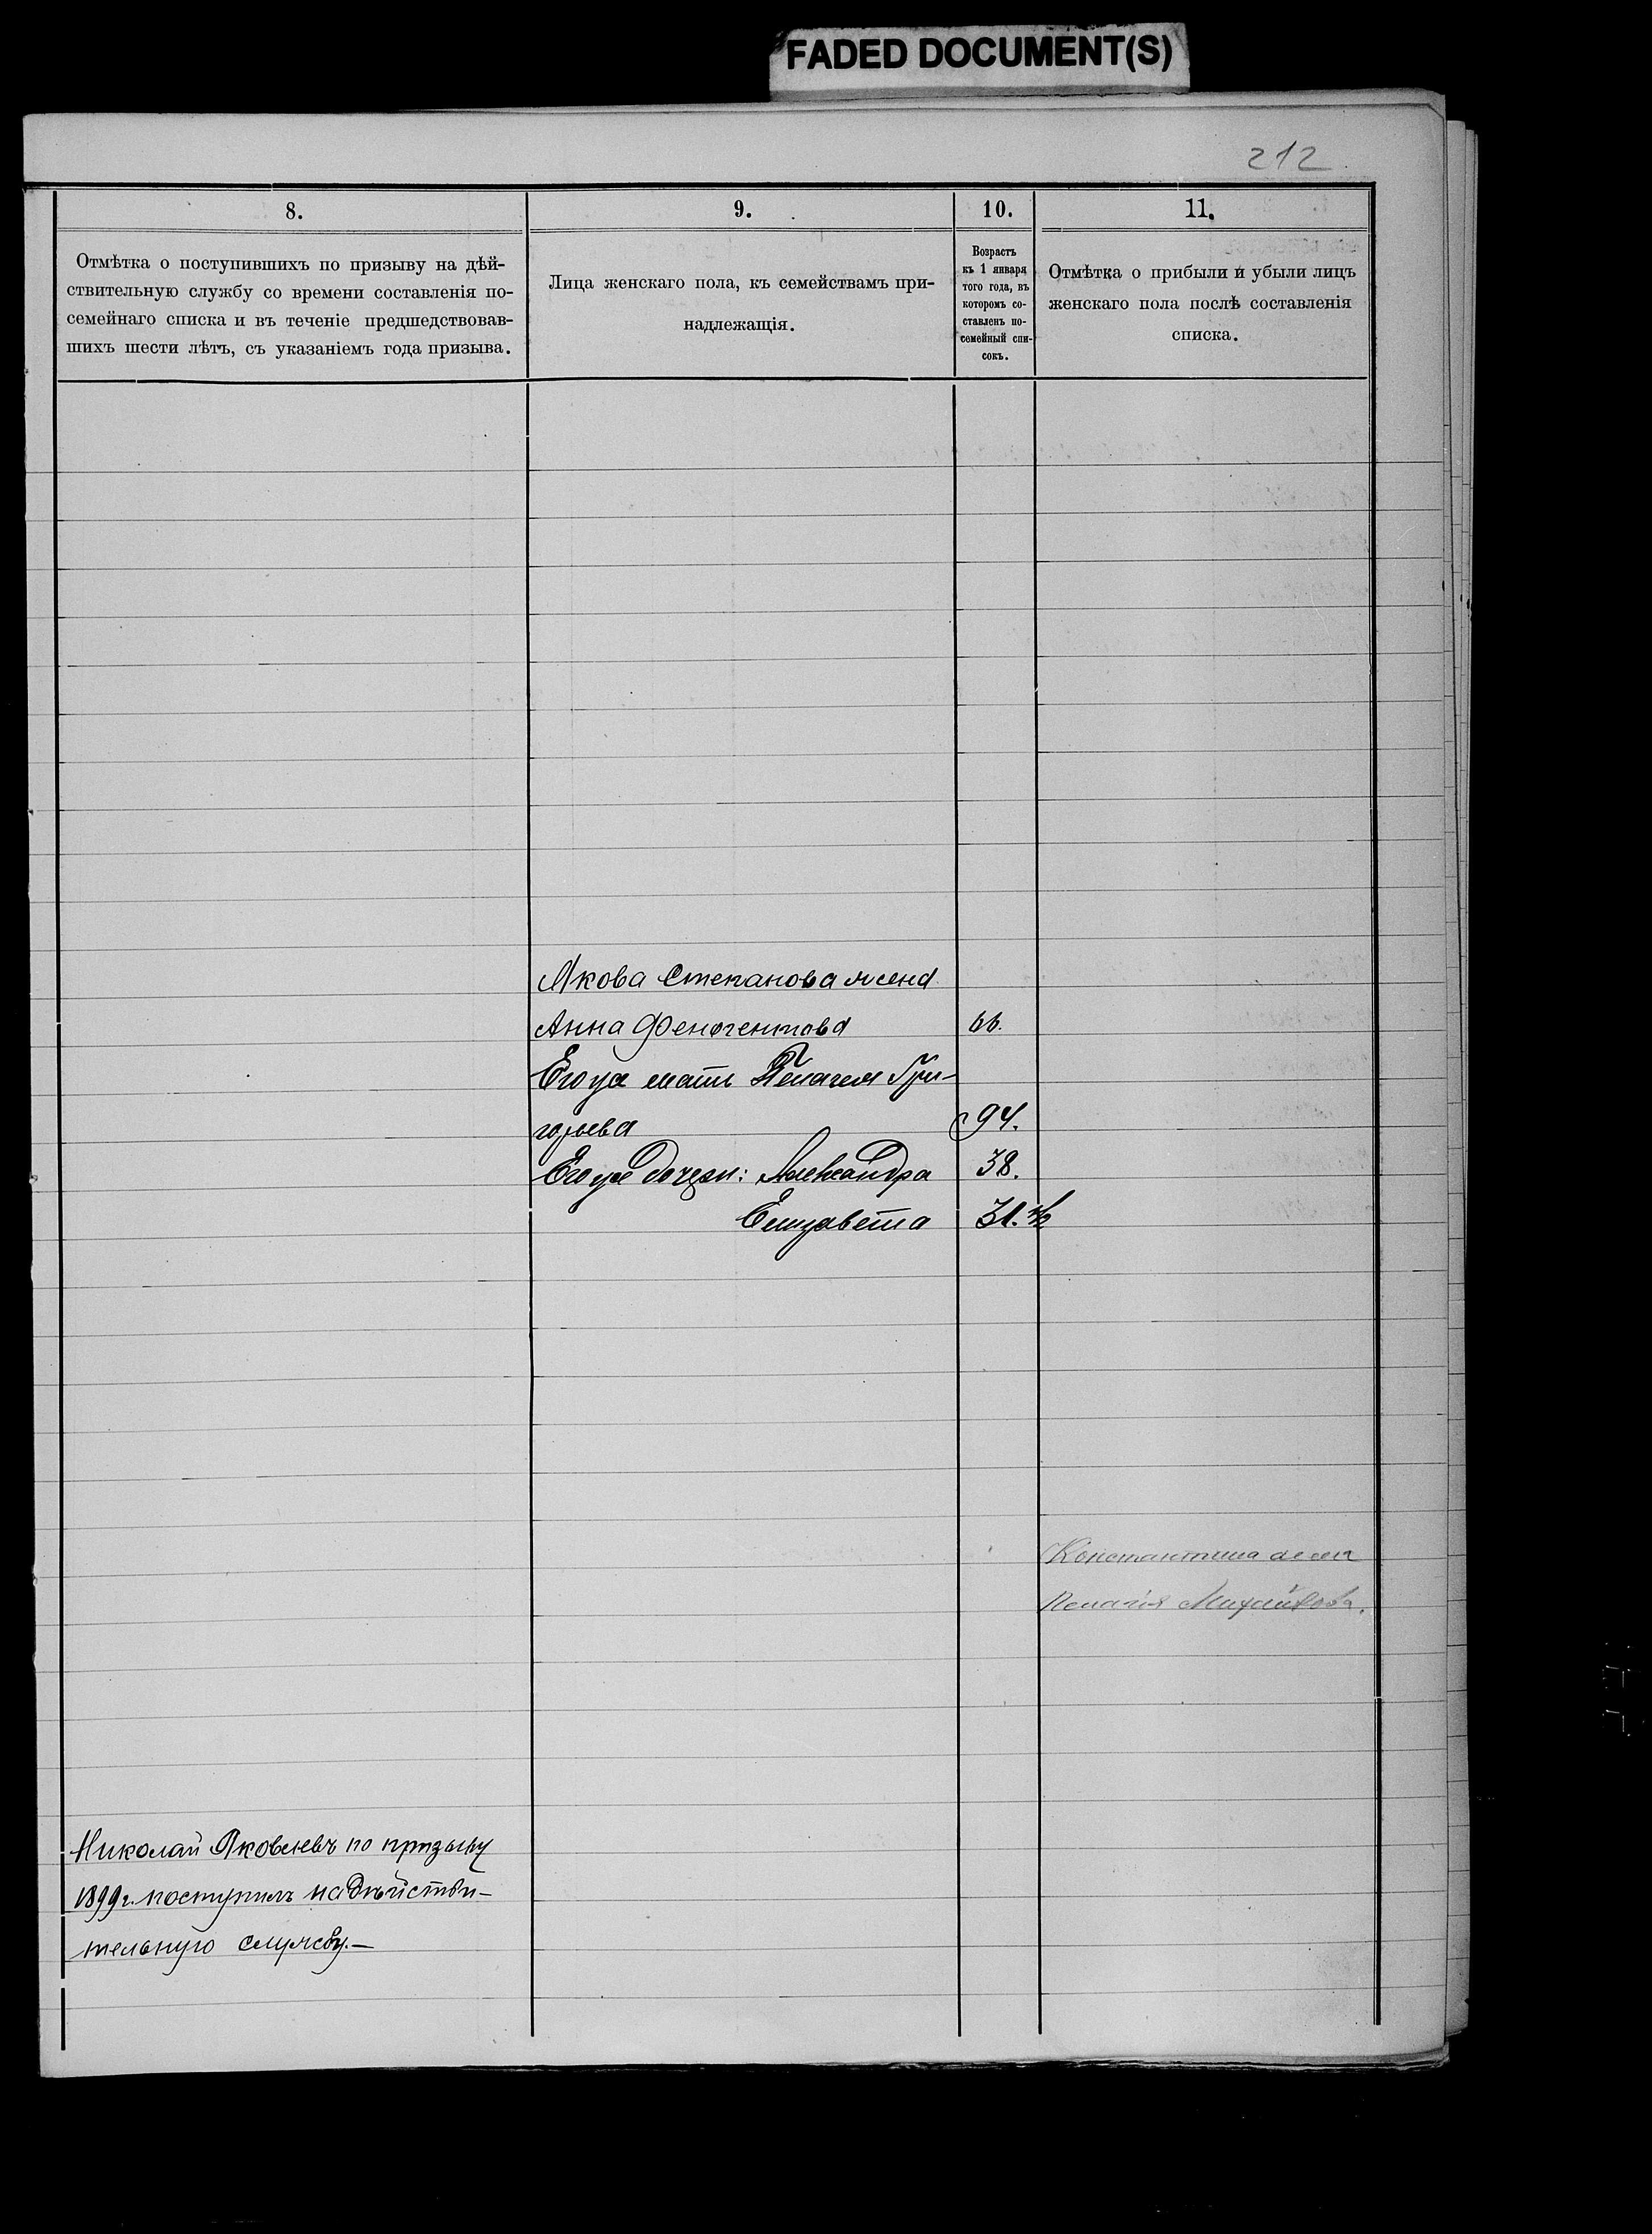 FADED DOCUMENT(S)
212
8.
Отмѣтка о поступившихъ по призыву на дѣй-
ствительную службу со времени составленія по-
семейнаго списка и въ теченіе предшедствовав-
шихъ шести лѣтъ, съ указаніемъ года призыва.
9.
Лица женскаго пола, къ семействамъ при-
надлежащія.
10.
Возрастъ
къ 1 января
того года, въ
которомъ со-
ставленъ по-
семейный спи-
сокъ.
11.
Отмѣтка о прибыли и убыли лицъ
женскаго пола послѣ составленія
списка.
Якова Степанова жена
Анна Феногентова 66.
Его же мать Пелагея Гри-
горьева 94.
Его же дочери: Александра 38.
Елизавета 31.
Константина жена
Пелагія Михайлова.
Николай Яковлевъ по призыву
1899 г. поступилъ на дѣйстви-
тельную службу.—